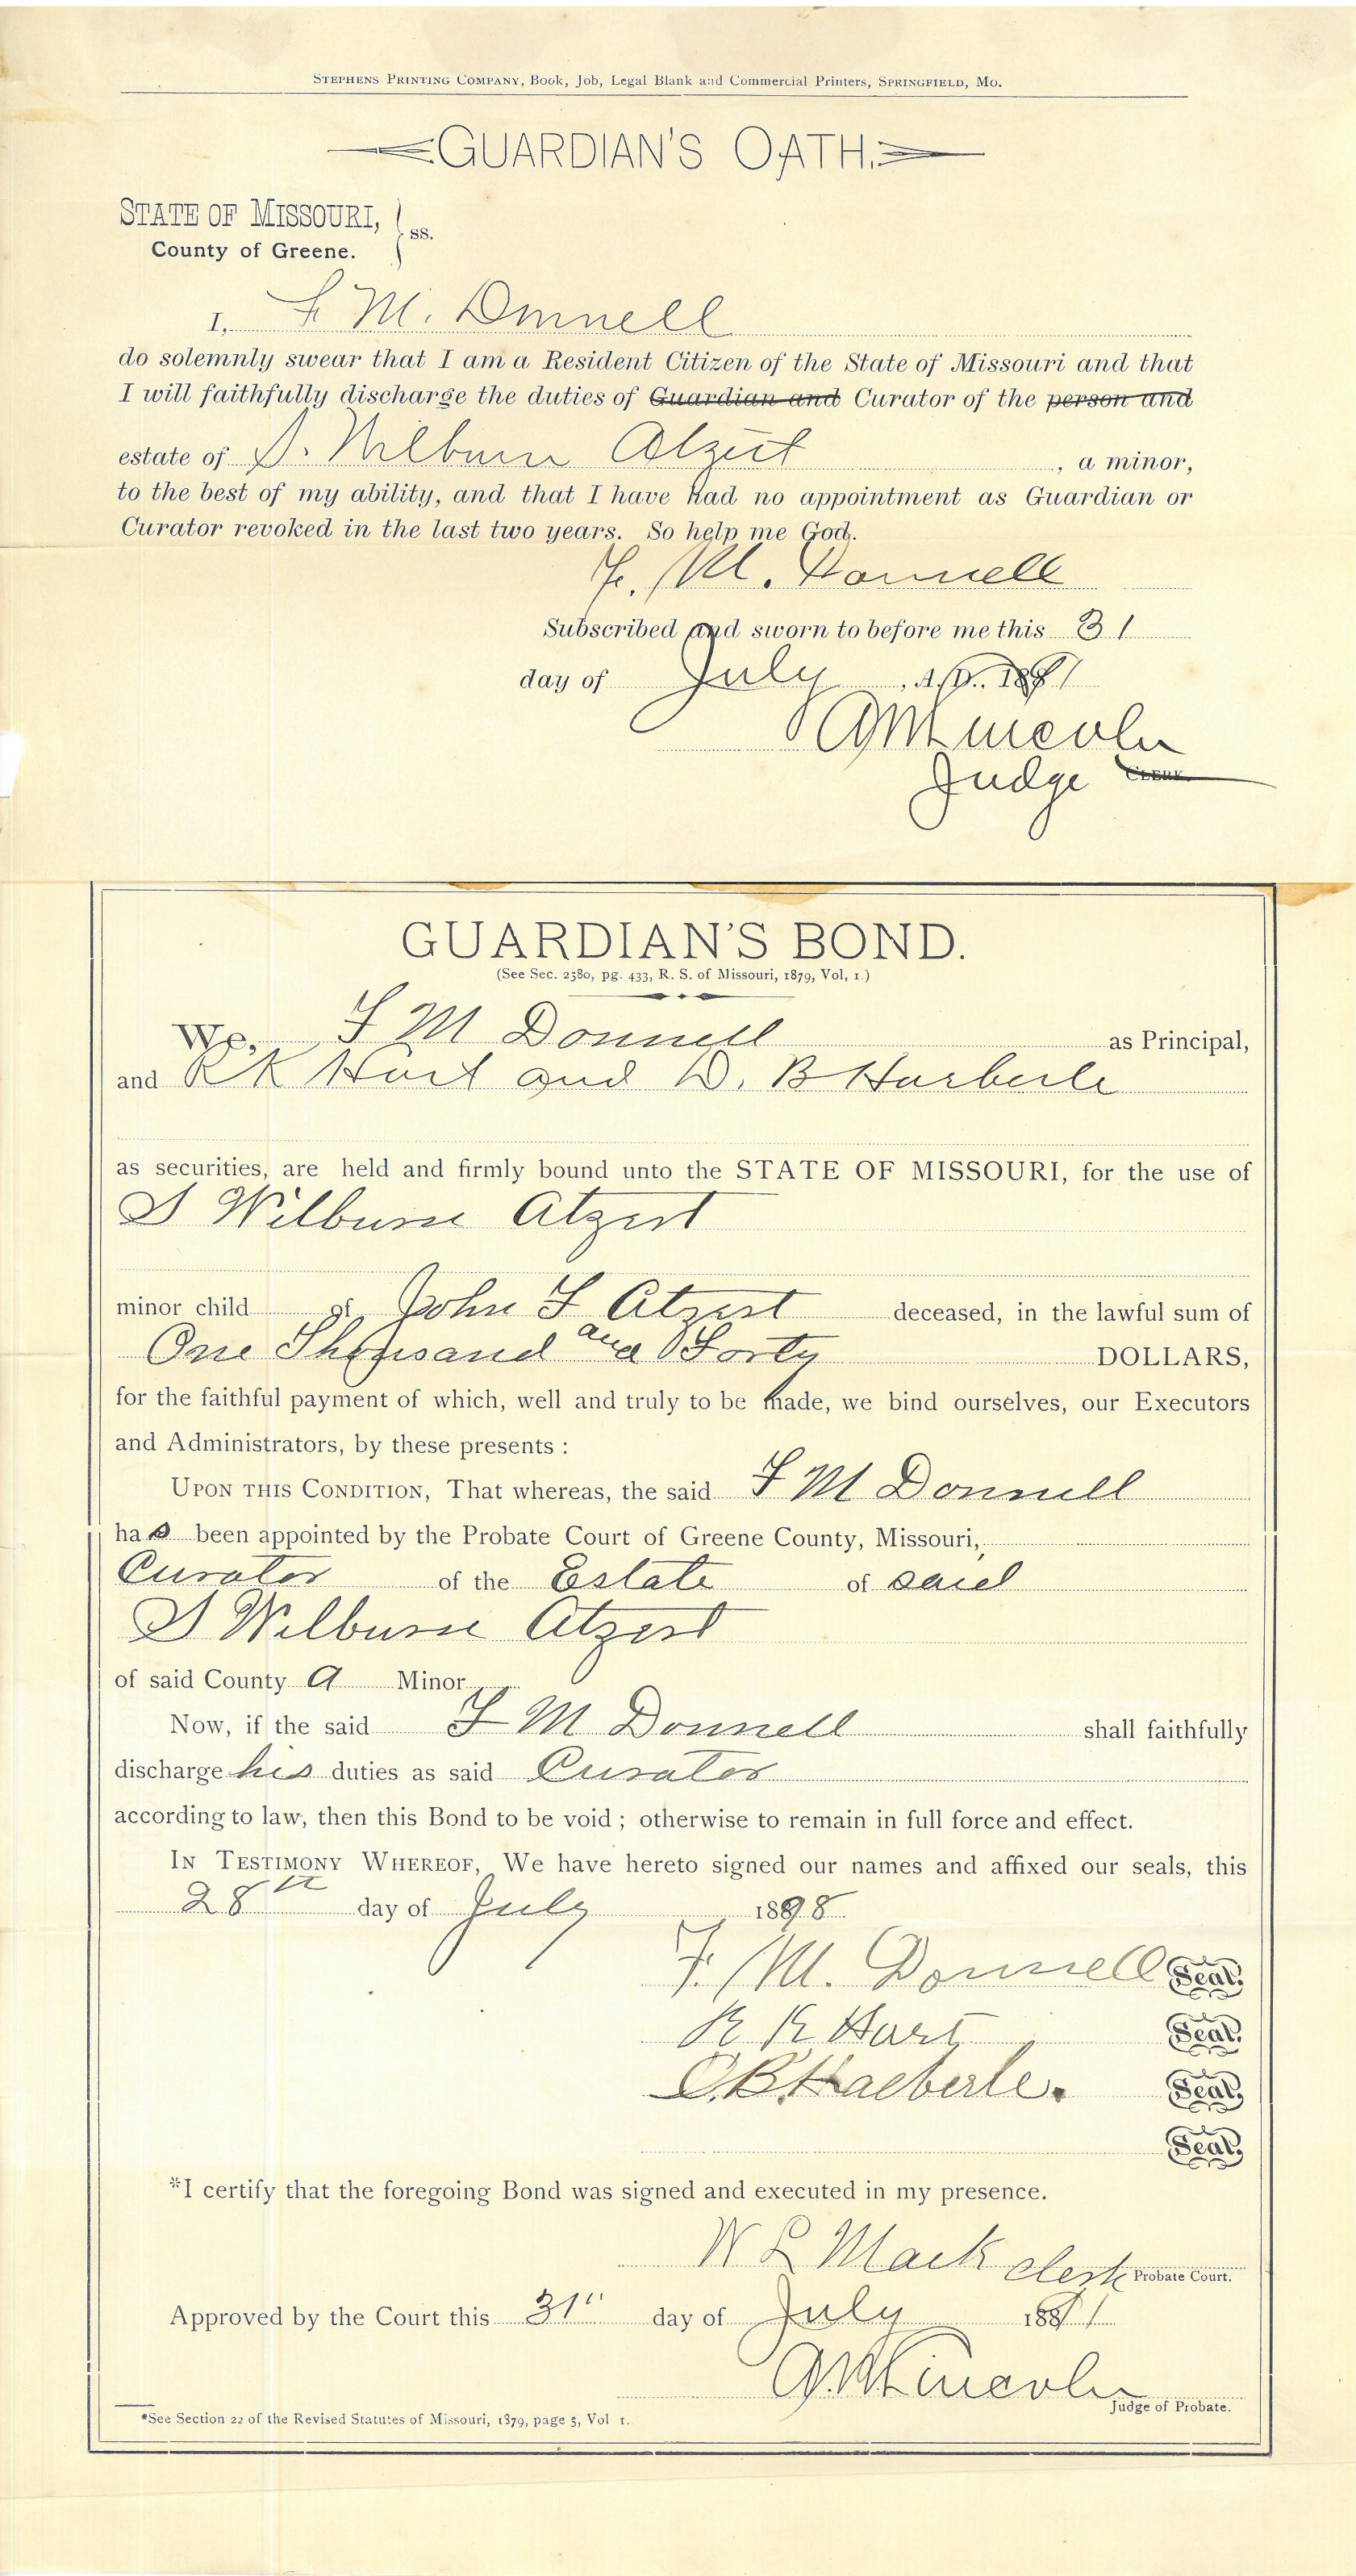 STEPHENS PRINTING COMPANY, Book, Job, Legal Blank and Commercial Printers, SPRINGFIELD, MO.
GUARDIAN'S OATH.
STATE OF MISSOURI, } ss.
County of Greene.
I, F M. Donnell
do solemnly swear that I am a Resident Citizen of the State of Missouri and that
I will faithfully discharge the duties of Guardian and Curator of the person and
estate of S. Wilburn Atzert, a minor,
to the best of my ability, and that I have had no appointment as Guardian or
Curator revoked in the last two years. So help me God.
F. M. Donnell
Subscribed and sworn to before me this 31
day of July, A. D. 1891
Lincoln
Judge CLERK.
GUARDIAN'S BOND.
(See Sec. 2580, pg. 433, R. S. of Missouri, 1879, Vol, 1.)
We, F M Donnell as Principal,
and R K Hart and D. B Harberle
as securities, are held and firmly bound unto the STATE OF MISSOURI, for the use of
S Wilburn Atzert
minor child of John F Atzert deceased, in the lawful sum of
One Thousand and Forty DOLLARS,
for the faithful payment of which, well and truly to be made, we bind ourselves, our Executors
and Administrators, by these presents :
UPON THIS CONDITION, That whereas, the said F M Donnell
has been appointed by the Probate Court of Greene County, Missouri,
Curator of the Estate of said
S Wilburn Atzert
of said County a Minor
Now, if the said F M Donnell shall faithfully
discharge his duties as said Curator
according to law, then this Bond to be void ; otherwise to remain in full force and effect.
IN TESTIMONY WHEREOF, We have hereto signed our names and affixed our seals, this
28th day of July 1898
F. M. Donnell Seal.
R K Hart Seal.
B. Haeberle. Seal.
Seal.
*I certify that the foregoing Bond was signed and executed in my presence.
W L Mack clerk Probate Court.
Approved by the Court this 31" day of July 1891
Lincoln
Judge of Probate.
*See Section 22 of the Revised Statutes of Missouri, 1879, page 5, Vol 1.